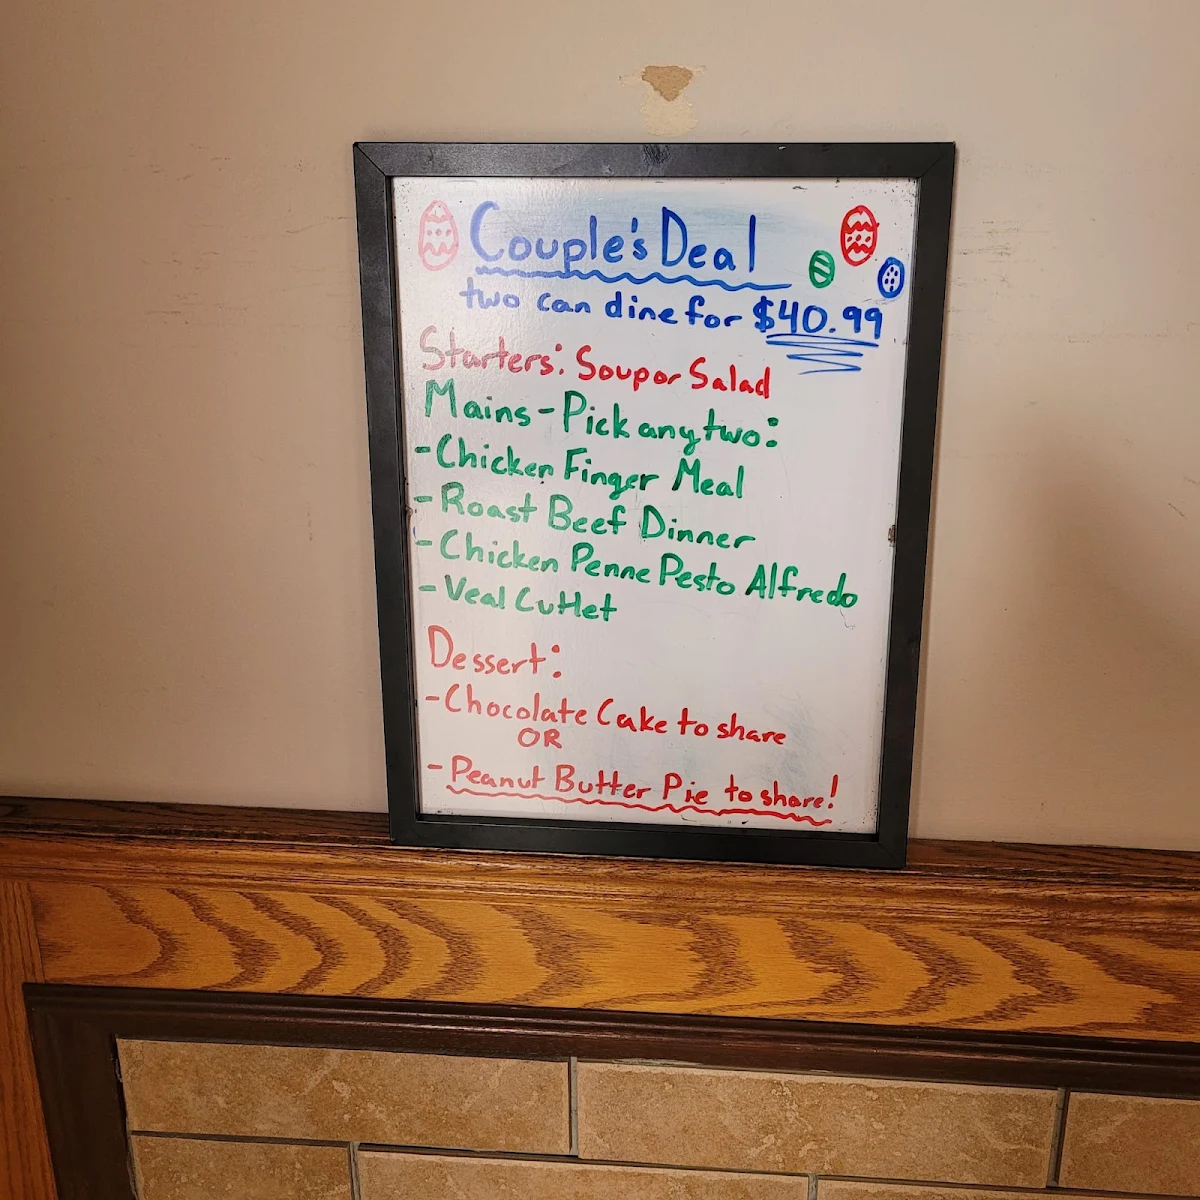 Couple's Deal
two can dine for $40.99
Starters: Soup or Salad
Mains - Pick any two:
- Chicken Finger Meal
- Roast Beef Dinner
- Chicken Penne Pesto Alfredo
- Veal Cutlet
Dessert:
- Chocolate Cake to share
OR
- Peanut Butter Pie to share!